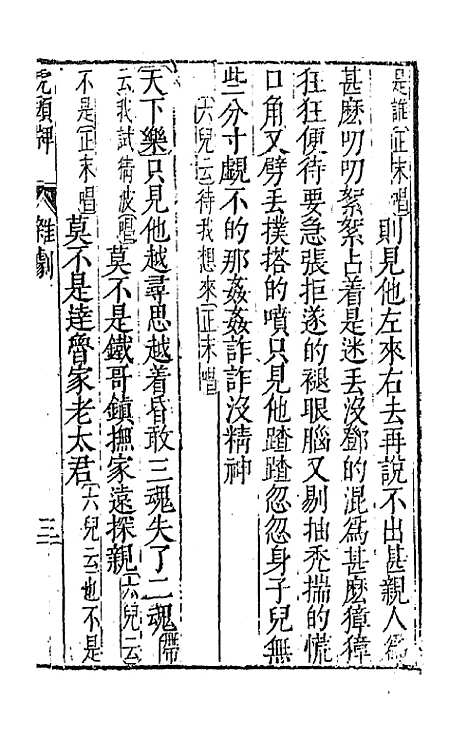 是誰(正末唱)則見他左來右去再說不出甚親人為
甚麽叨叨絮絮占着是迷丟沒鄧的混為甚麽獐獐
狂狂便待要急張拒遂的褪眼腦又剔抽禿揣的慌
口角又劈丟撲搭的噴只見他蹅蹅忽忽身子兒無
些分寸覷不的那姦姦詐詐沒精神
(六兒云)待我想來(正末唱)
天下樂只見他越尋思越着昏敢三魂失了二魂(帶
云)我試猜波(唱)莫不是鐵哥鎮撫家遠探親(六兒云)
不是(正末唱)莫不是達魯家老太君(六兒云)也不是
虎頭牌 雜劇 三